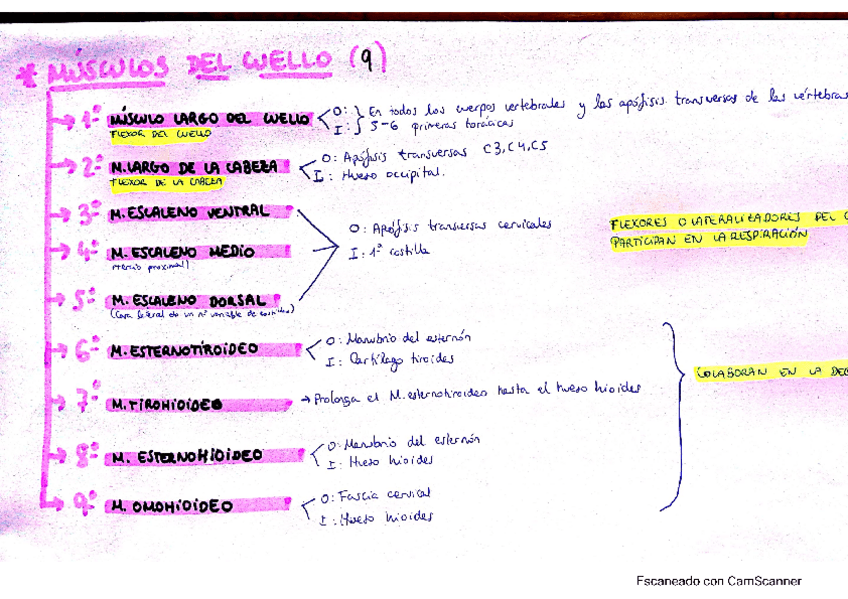 * MÚSCULOS DEL CUELLO (9)
→ 1º MÚSCULO LARGO DEL CUELLO
FLEXOR DEL CUELLO
O: } En todos los cuerpos vertebrales y las apófisis transversas de las vértebras
I: } 5-6 primeras torácicas
→ 2º M. LARGO DE LA CABEZA
FLEXOR DE LA CABEZA
O: Apófisis transversas C3, C4, C5
I: Hueso occipital.
→ 3º M. ESCALENO VENTRAL
→ 4º M. ESCALENO MEDIO
(tercio proximal)
→ 5º M. ESCALENO DORSAL
(Cara lateral de un nº variable de costillas)
O: Apófisis transversas cervicales
I: 1ª costilla
FLEXORES O LATERALIZADORES DEL C
PARTICIPAN EN LA RESPIRACIÓN
→ 6º M. ESTERNOTIROIDEO
O: Manubrio del esternón
I: Cartílago tiroides
→ 7º M. TIROHIOIDEO
→ Prolonga el M. esternotiroideo hasta el hueso hioides
→ 8º M. ESTERNOHIOIDEO
O: Manubrio del esternón
I: Hueso hioides
→ 9º M. OMOHIOIDEO
O: Fascia cervical
I: Hueso hioides
COLABORAN EN LA DE
Escaneado con CamScanner